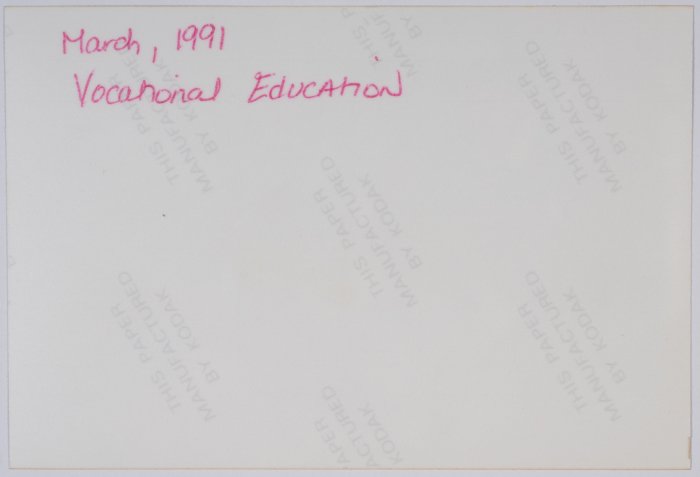 March, 1991
Vocational Education
THIS PAPER
MANUFACTURED
BY KODAK
THIS PAPER
MANUFACTURED
BY KODAK
THIS PAPER
MANUFACTURED
BY KODAK
THIS PAPER
MANUFACTURED
BY KODAK
THIS PAPER
MANUFACTURED
BY KODAK
THIS PAPER
MANUFACTURED
BY KODAK
THIS PAPER
MANUFACTURED
BY KODAK